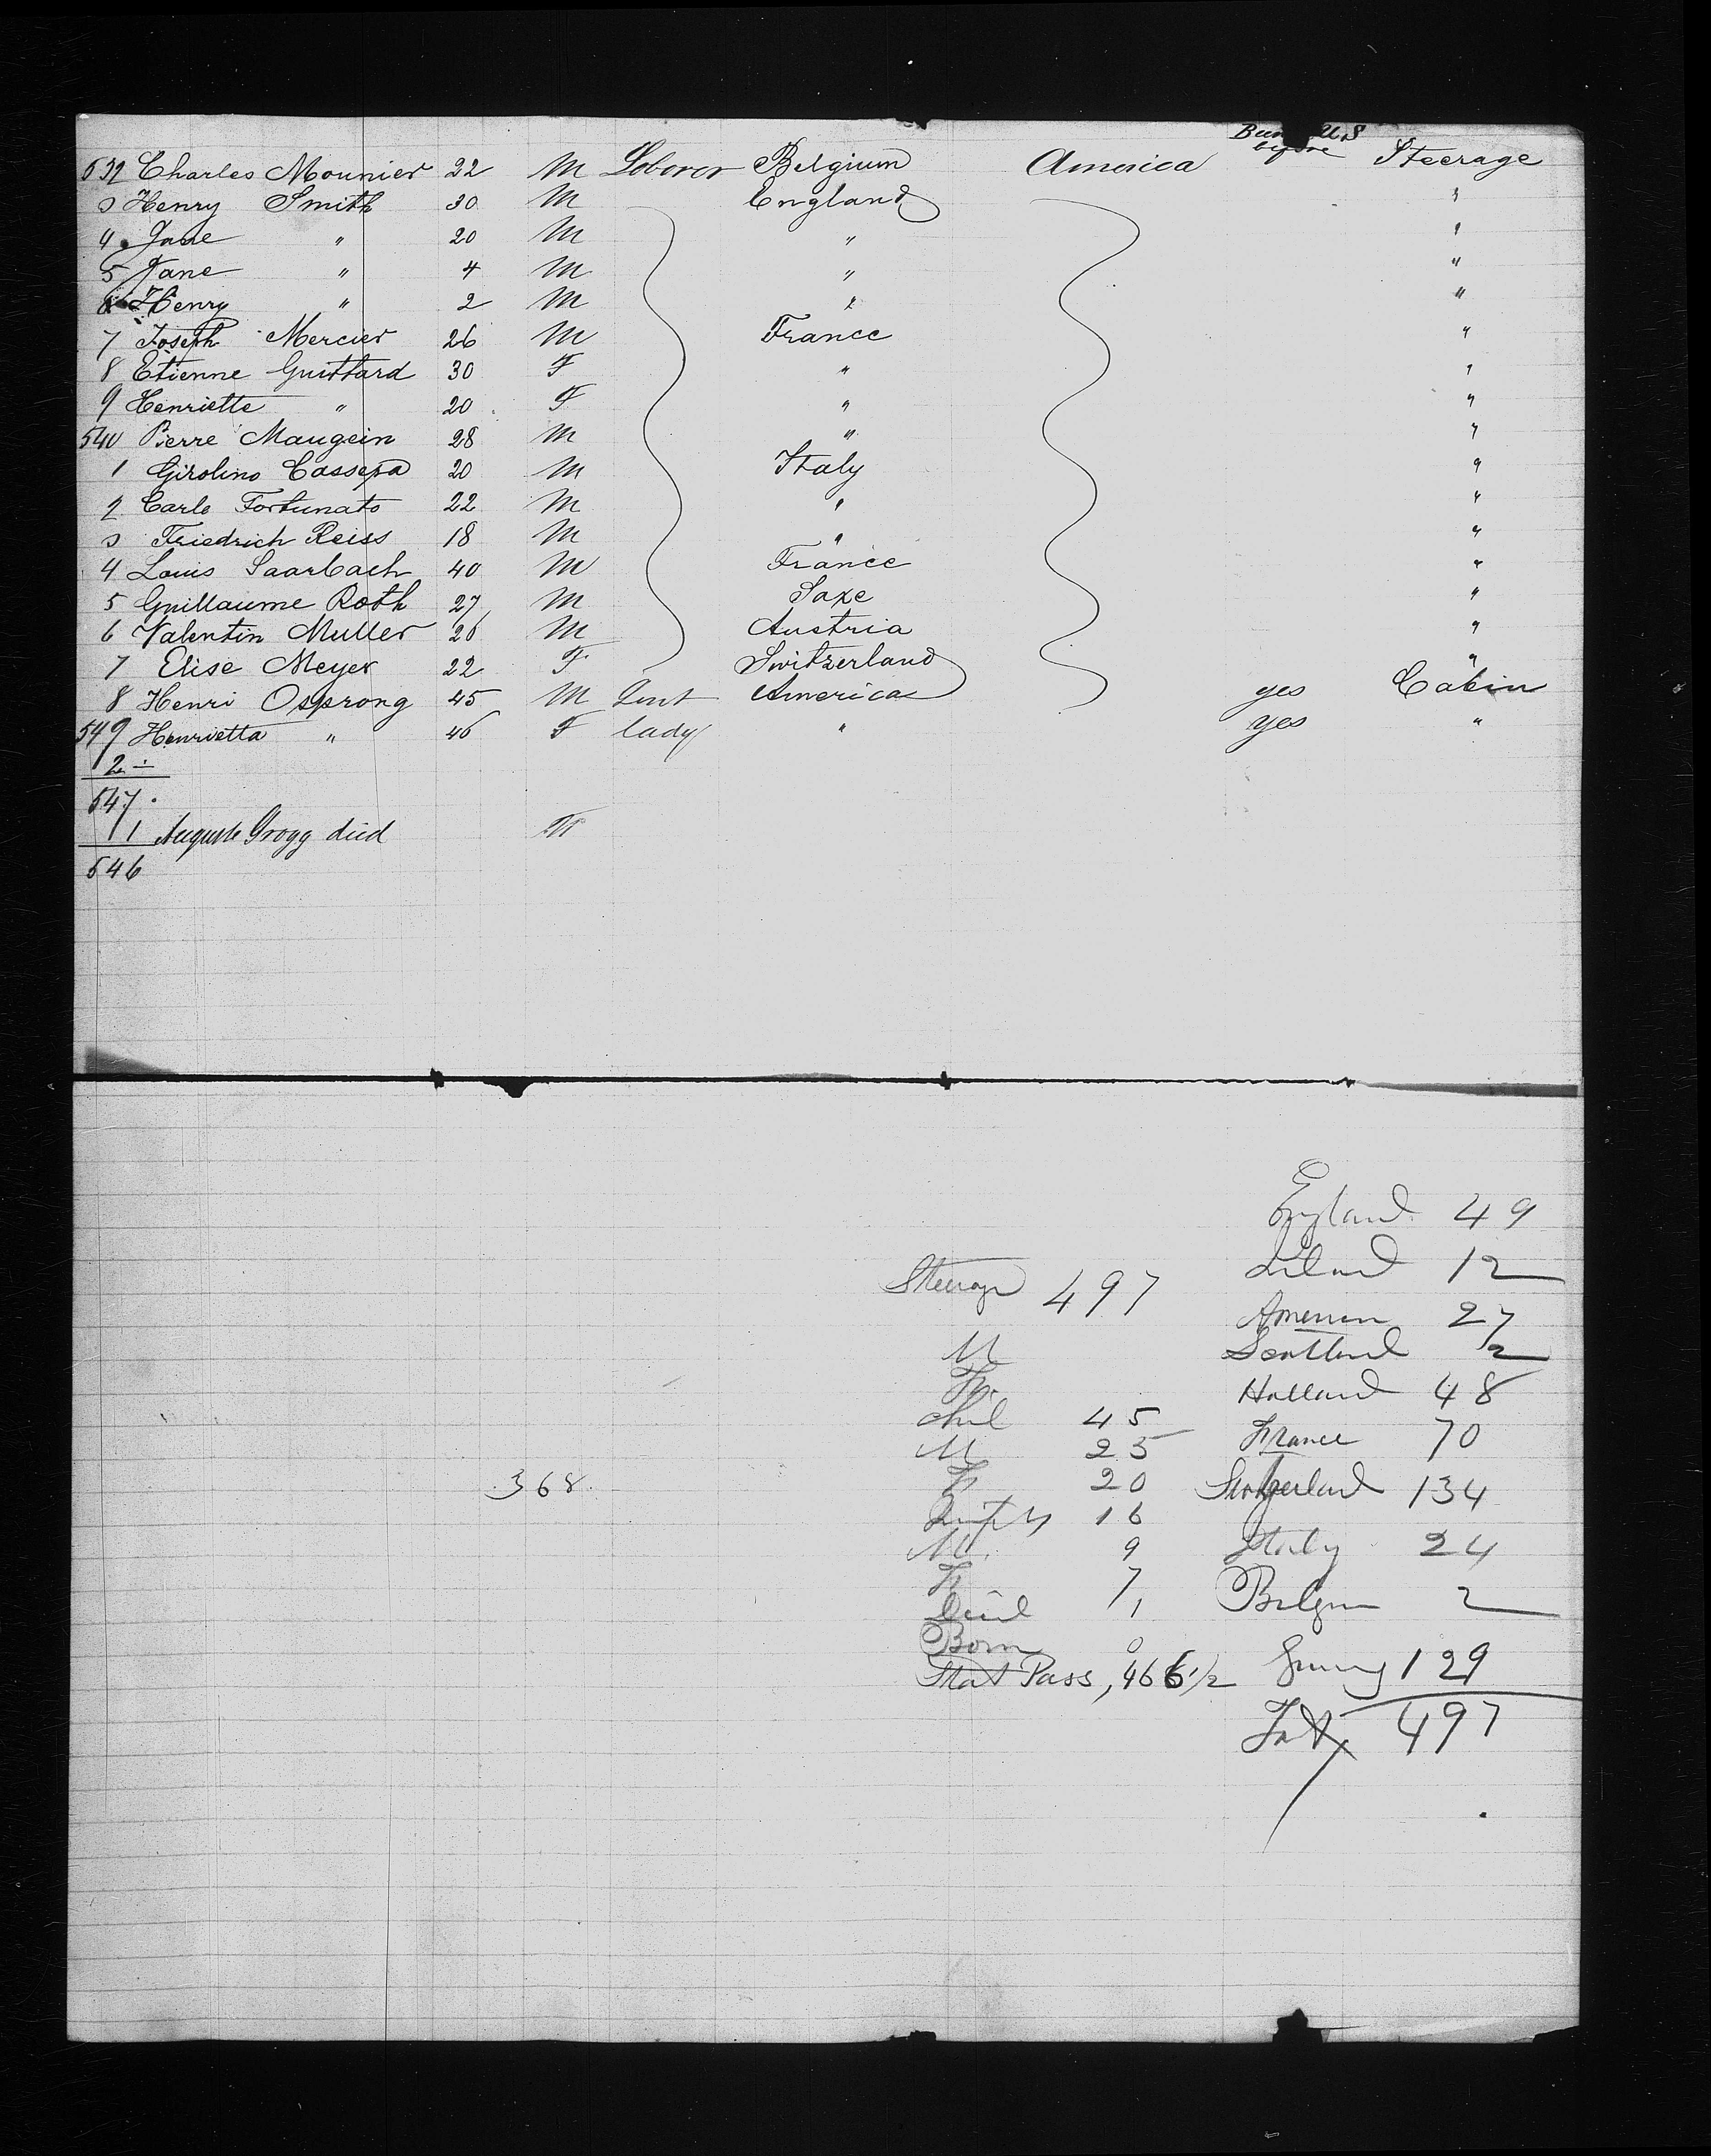 Been U.S before
532 Charles Mounier 22 M Loboror Belgium America Steerage
3 Henry Smith 30 M England "
4 Jane " 20 M " "
5 Jane " 4 M " "
6 Henry " 2 M " "
7 Joseph Mercier 26 M France "
8 Etienne Guittard 30 F " "
9 Henriette " 20 F " "
540 Pierre Maugein 28 M " "
1 Girolino Cassera 20 M Italy "
2 Carlo Fortunato 22 M " "
3 Friedrich Reiss 18 M " "
4 Louis Saarbach 40 M France "
5 Guillaume Roth 27 M Saxe "
6 Valentin Muller 26 M Austria "
7 Elise Meyer 22 F Switzerland "
8 Henri Osprong 45 M Gent America yes Cabin
549 Henrietta " 46 F lady " yes "
2 ÷
547.
1 1 Auguste Grogg died M
546
England 49
Ireland 12
Steerage 497
American 27
M Scotland 2
F. Holland 48
Chil 45
M 25 France 70
F 20 Switzerland 134
368
Infts 16
M. 9 Italy 24
F 7 Belgium 2
Died 1
Born 0
Stat Pass, 466 1/2 Germy 129
Tot 497